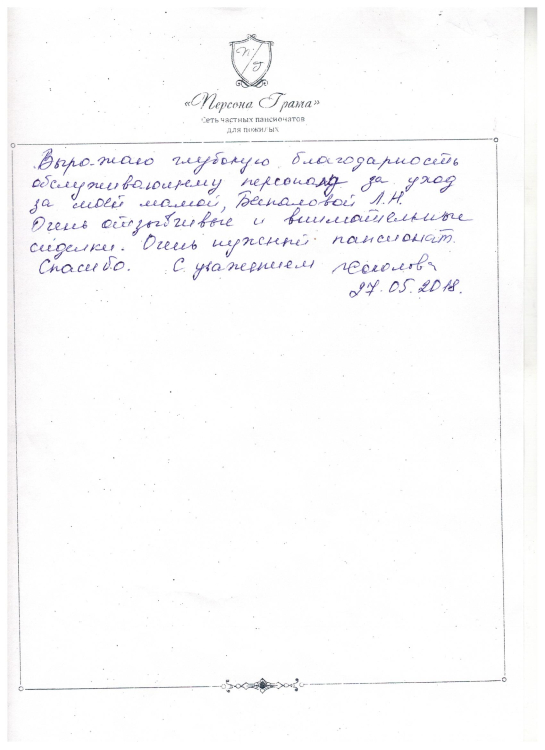 П Г
«Персона Грата»
Сеть частных пансионатов
для пожилых
Выражаю глубокую благодарность
обслуживающему персоналу за уход
за моей мамой, Беспаловой Л.Н.
Очень отзывчивые и внимательные
сиделки. Очень нужный пансионат.
Спасибо. С уважением
27.05.2018.